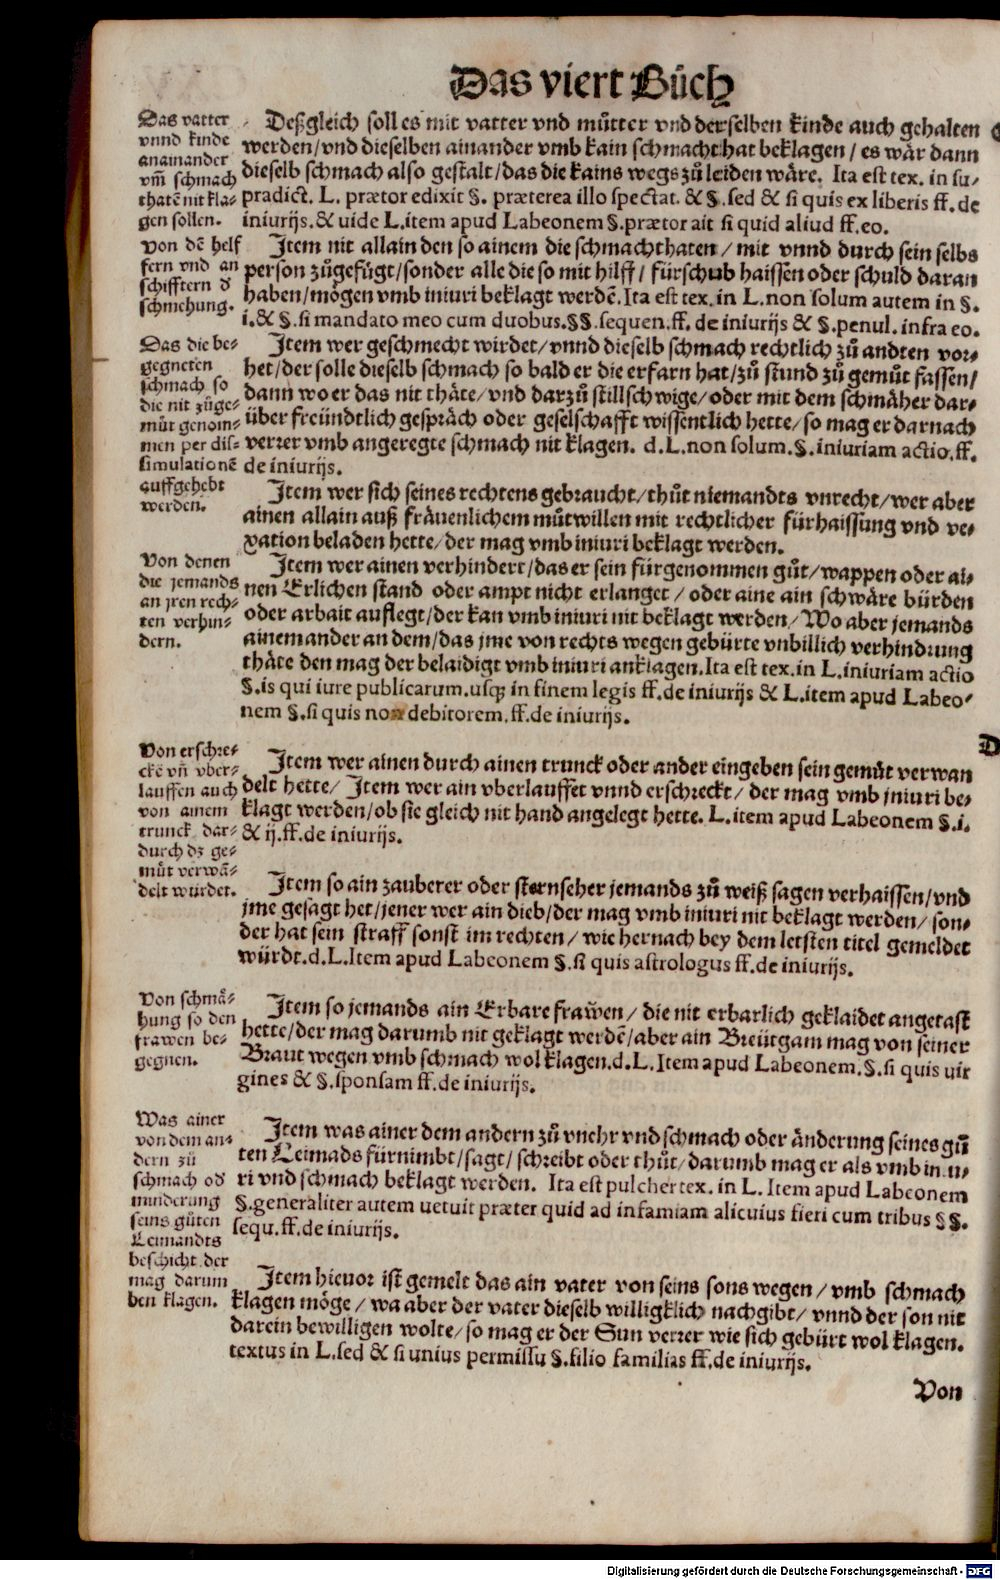 Das viert Bůch
Das vatter
vnnd kinde
anainander
vm̃ schmach
thatẽ nit kla-
gen sollen.
Deßgleich soll es mit vatter vnd můtter vnd derselben kinde auch gehalten
werden/vnd dieselben ainander vmb kain schmachthat beklagen / es wär dann
dieselb schmach also gestalt/das die kains wegs zů leiden wäre. Ita est tex. in su-
pradict. L. prætor edixit §. præterea illo spectat. & §.sed & si quis ex liberis ff. de
iniurijs.& uide L.item apud Labeonem §.prætor ait si quid aliud ff.eo.
Von dẽ helf
fern vnd an
schifftern d
schmehung.
Item nit allain den so ainem die schmachthaten / mit vnnd durch sein selbs
person zůgefügt/sonder alle die so mit hilff / fürschub haissen oder schuld daran
haben/mögen vmb iniuri beklagt werdẽ. Ita est tex. in L.non solum autem in §.
i.& §.si mandato meo cum duobus.§§.sequen.ff. de iniurijs & §.penul. infra eo.
Das die be-
gegneten
schmach so
die nit zůge-
můt genom-
men per dis-
simulationẽ
auffgehebt
werden.
Item wer geschmecht wirdet/vnnd dieselb schmach rechtlich zů andten vor-
het/der solle dieselb schmach so bald er die erfarn hat/zů stund zů gemůt fassen/
dann wo er das nit thäte/vnd darzů stillschwige/oder mit dem schmäher dar-
über freündtlich gespräch oder geselschafft wissentlich hette/so mag er darnach
verrer vmb angeregte schmach nit klagen. d.L.non solum.§.iniuriam actio.ff.
de iniurijs.
Item wer sich seines rechtens gebraucht/thůt niemandts vnrecht/wer aber
ainen allain auß fräuenlichem můtwillen mit rechtlicher fürhaissung vnd ve-
xation beladen hette/der mag vmb iniuri beklagt werden.
Von denen
die jemands
an jren rech-
ten verhin-
dern.
Item wer ainen verhindert/das er sein fürgenommen gůt/wappen oder ai-
nen Erlichen stand oder ampt nicht erlanget / oder aine ain schwäre bürden
oder arbait auflegt/der kan vmb iniuri nit beklagt werden/Wo aber jemands
ainem ander an dem/das jme von rechts wegen gebürte vnbillich verhindrung
thäte den mag der belaidigt vmb iniuri anklagen. Ita est tex.in L.iniuriam actio
§.is qui iure publicarum.usq; in finem legis ff.de iniurijs & L.item apud Labeo-
nem §.si quis non debitorem.ff.de iniurijs.
Von erschre-
ckẽ vñ vber-
lauffen auch
von ainem
trunck dar-
durch dz ge-
můt verwã-
delt wurdet.
Item wer ainen durch ainen trunck oder ander eingeben sein gemůt verwan
delt hette/ Item wer ain vberlauffet vnnd erschreckt/ der mag vmb iniuri be-
klagt werden/ob sie gleich nit hand angelegt hette. L.item apud Labeonem §.i.
& ij.ff.de iniurijs.
Item so ain zauberer oder sternseher jemands zů weiß sagen verhaissen/vnd
jme gesagt het/jener wer ain dieb/der mag vmb iniuri nit beklagt werden/ son-
der hat sein straff sonst im rechten / wie hernach bey dem letsten titel gemeldet
würdt.d.L.Item apud Labeonem §.si quis astrologus ff.de iniurijs.
Von schmä-
hung so den
frawen be-
gegnen.
Item so jemands ain Erbare frawen / die nit erbarlich geklaidet angetast
hette/der mag darumb nit geklagt werdẽ/aber ain Breütgam mag von seiner
Braut wegen vmb schmach wol klagen.d.L. Item apud Labeonem.§.si quis uir
gines & §.sponsam ff.de iniurijs.
Was ainer
von dem an-
dern zů
schmach od
minderung
seins gůten
Leimandts
beschicht der
mag darum
ben klagen.
Item was ainer dem andern zů vnehr vnd schmach oder änderung seines gů
ten Leimads fürnimbt/sagt/ schreibt oder thůt/darumb mag er als vmb iniu-
ri vnd schmach beklagt werden. Ita est pulcher tex. in L. Item apud Labeonem
§.generaliter autem uetuit præter quid ad infamiam alicuius fieri cum tribus §§.
sequ.ff.de iniurijs.
Item hieuor ist gemelt das ain vater von seins sons wegen / vmb schmach
klagen möge / wa aber der vater dieselb willigklich nachgibt/ vnnd der son nit
darein bewilligen wolte/so mag er der Sun verrer wie sich gebürt wol klagen.
textus in L.sed & si unius permissu §.filio familias ff.de iniurijs.
Von
Digitalisierung gefördert durch die Deutsche Forschungsgemeinschaft - DFG